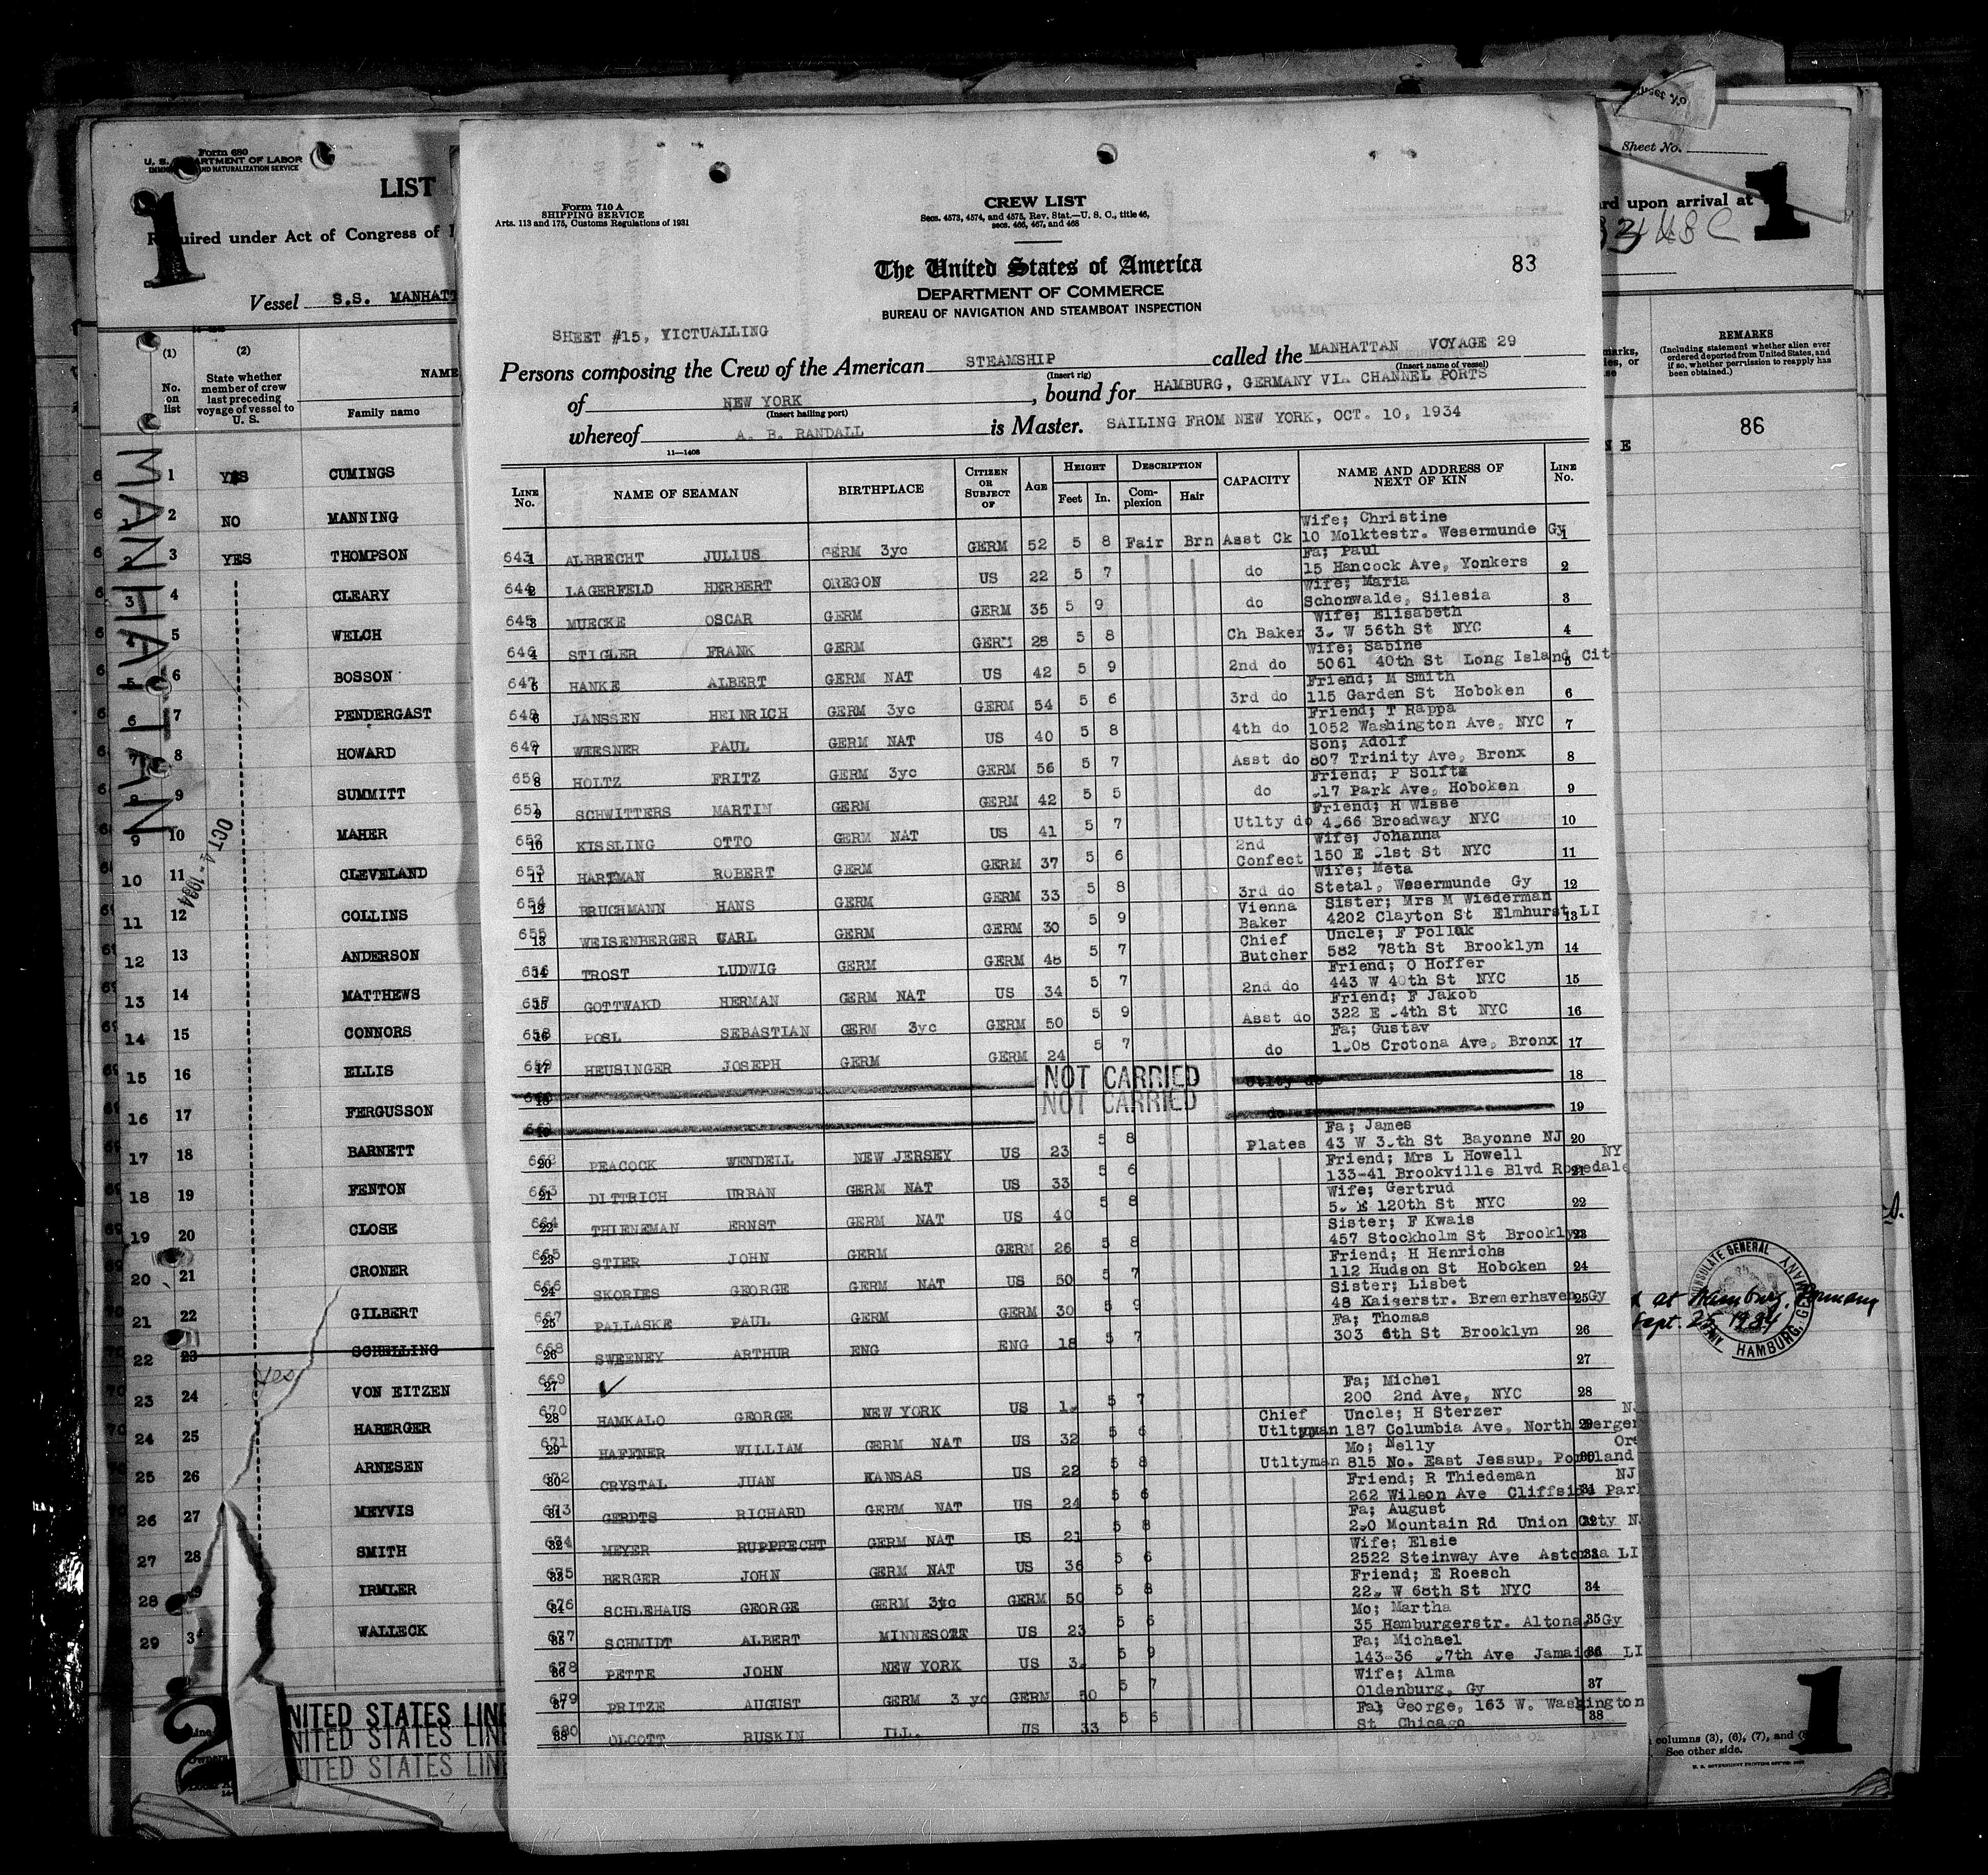 Form 680
U. S. DEPARTMENT OF LABOR
IMMIGRATION AND NATURALIZATION SERVICE
1
LIST
Required under Act of Congress of
Vessel S.S. MANHATT
(1) (2)
No. on list
State whether member of crew last preceding voyage of vessel to U. S.
NAME
Family name
MANHATTAN
OCT 4 - 1934
1 YES CUMINGS
2 NO MANNING
3 YES THOMPSON
4 CLEARY
5 WELCH
6 BOSSON
7 PENDERGAST
8 HOWARD
9 SUMMITT
10 MAHER
11 CLEVELAND
12 COLLINS
13 ANDERSON
14 MATTHEWS
15 CONNORS
16 ELLIS
17 FERGUSSON
18 BARNETT
19 FENTON
20 CLOSE
21 CRONER
22 GILBERT
23 SCHELLING
24 yes VON EITZEN
25 HABERGER
26 ARNESEN
27 MEYVIS
28 SMITH
29 IRMLER
WALLECK
2
UNITED STATES LINE
UNITED STATES LINE
UNITED STATES LINE
Form 710 A
SHIPPING SERVICE
Arts. 113 and 175, Customs Regulations of 1931
CREW LIST
Secs. 4573, 4574, and 4575, Rev. Stat.—U. S. C., title 46,
secs. 466, 467, and 468
The United States of America
DEPARTMENT OF COMMERCE
BUREAU OF NAVIGATION AND STEAMBOAT INSPECTION
83
SHEET #15, VICTUALLING
Persons composing the Crew of the American STEAMSHIP called the MANHATTAN VOYAGE 29
(Insert rig) (Insert name of vessel)
of NEW YORK, bound for HAMBURG, GERMANY VIA CHANNEL PORTS
(Insert hailing port)
whereof A. B. RANDALL is Master. SAILING FROM NEW YORK, OCT. 10, 1934
11—1408
LINE No. NAME OF SEAMAN BIRTHPLACE CITIZEN OR SUBJECT OF AGE HEIGHT Feet In. DESCRIPTION Complexion Hair CAPACITY NAME AND ADDRESS OF NEXT OF KIN LINE No.
643 1 ALBRECHT JULIUS GERM 3yc GERM 52 5 8 Fair Brn Asst Ck Wife; Christine
10 Molktestr. Wesermunde Gy 1
644 2 LAGERFELD HERBERT OREGON US 22 5 7 do Fa; Paul
15 Hancock Ave, Yonkers 2
645 3 MUECKE OSCAR GERM GERM 35 5 9 do Wife; Maria
Schonwalde, Silesia 3
646 4 STIGLER FRANK GERM GERM 28 5 8 Ch Baker Wife; Elisabeth
W 56th St NYC 4
647 5 HANKE ALBERT GERM NAT US 42 5 9 2nd do Wife; Sabine
5061 40th St Long Island Cit 5
648 6 JANSSEN HEINRICH GERM 3yc GERM 54 5 6 3rd do Friend; M Smith
115 Garden St Hoboken 6
649 7 WEESNER PAUL GERM NAT US 40 5 8 4th do Friend; T Rappa
1052 Washington Ave, NYC 7
650 8 HOLTZ FRITZ GERM 3yc GERM 56 5 7 Asst do Son; Adolf
807 Trinity Ave, Bronx 8
651 9 SCHWITTERS MARTIN GERM GERM 42 5 5 do Friend; P Solftz
Park Ave, Hoboken 9
652 10 KISSLING OTTO GERM NAT US 41 5 7 Utlty do Friend; H Wisse
Broadway NYC 10
653 11 HARTMAN ROBERT GERM GERM 37 5 6 2nd Confect Wife; Johanna
150 E St NYC 11
654 12 BRUCHMANN HANS GERM GERM 33 5 8 3rd do Wife; Meta
Stetal, Wesermunde Gy 12
655 13 WEISENBERGER CARL GERM GERM 30 5 9 Vienna Baker Sister; Mrs M Wiederman
4202 Clayton St Elmhurst LI 13
656 14 TROST LUDWIG GERM GERM 48 5 7 Chief Butcher Uncle; F Pollak
582 78th St Brooklyn 14
657 15 GOTTWAKD HERMAN GERM NAT US 34 5 7 2nd do Friend; O Hoffer
443 W 40th St NYC 15
658 16 POSL SEBASTIAN GERM 3yc GERM 50 5 9 Asst do Friend; F Jakob
322 E St NYC 16
659 17 HEUSINGER JOSEPH GERM GERM 24 5 7 do Fa; Gustav
Crotona Ave, Bronx 17
660 18 NOT CARRIED Utlty do 18
661 19 NOT CARRIED do 19
662 20 PEACOCK WENDELL NEW JERSEY US 23 5 8 Plates Fa; James
43 W St Bayonne NJ 20
663 21 DITTRICH URBAN GERM NAT US 33 5 6 Friend; Mrs L Howell NY
133-41 Brookville Blvd Rosedale 21
664 22 THIENEMAN ERNST GERM NAT US 40 5 8 Wife; Gertrud
E 120th St NYC 22
665 23 STIER JOHN GERM GERM 26 5 8 Sister; F Kwais
457 Stockholm St Brooklyn 23
666 24 SKORIES GEORGE GERM NAT US 50 5 7 Friend; H Henrichs
112 Hudson St Hoboken 24
667 25 PALLASKE PAUL GERM GERM 30 5 9 Sister; Lisbet
48 Kaigerstr. Bremerhaven Gy 25
668 26 SWEENEY ARTHUR ENG ENG 18 5 7 Fa; Thomas
303 6th St Brooklyn 26
669 27 ✓ 27
670 28 HAMKALO GEORGE NEW YORK US 5 7 Fa; Michel
200 2nd Ave, NYC 28
671 29 HAFFNER WILLIAM GERM NAT US 32 5 6 Chief Utltyman Uncle; H Sterzer NJ
187 Columbia Ave, North Bergen 29
672 30 CRYSTAL JUAN KANSAS US 22 5 8 Utltyman Mo; Nelly Ore
815 No. East Jessup, Portland 30
673 31 GERDTS RICHARD GERM NAT US 24 5 6 Friend; R Thiedeman NJ
262 Wilson Ave Cliffside Park 31
674 32 MEYER RUPPRECHT GERM NAT US 21 5 8 Fa; August
Mountain Rd Union City NJ 32
675 33 BERGER JOHN GERM NAT US 36 5 6 Wife; Elsie
2522 Steinway Ave Astoria LI 33
676 34 SCHLEHAUS GEORGE GERM 3yc GERM 50 5 8 Friend; E Roesch
W 68th St NYC 34
677 35 SCHMIDT ALBERT MINNESOTA US 23 5 6 Mo; Martha
35 Hamburgerstr. Altona, Gy 35
678 36 PETTE JOHN NEW YORK US 5 9 Fa; Michael
143-36 Ave Jamaica LI 36
679 37 PRITZE AUGUST GERM 3 yc GERM 50 5 7 Wife; Alma
Oldenburg, Gy 37
680 38 OLCOTT RUSKIN ILL. US 33 5 6 Fa; George, 163 W. Washington
St Chicago 38
Sheet No.
1
ard upon arrival at
REMARKS
(Including statement whether alien ever ordered deported from United States, and if so, whether permission to reapply has been obtained.)
86
at Hamburg, Germany
Sept. 25, 1934
CONSULATE GENERAL
HAMBURG, GERMANY
columns (3), (6), (7), and (8)
See other side.
U. S. GOVERNMENT PRINTING OFFICE
1